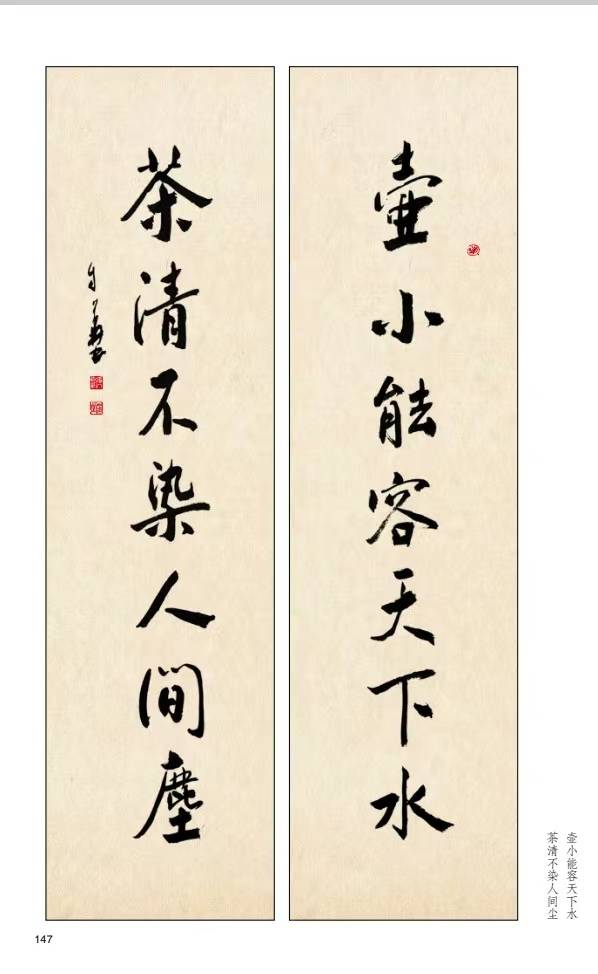 壺小能容天下水
茶清不染人間塵
壶小能容天下水
茶清不染人间尘
147